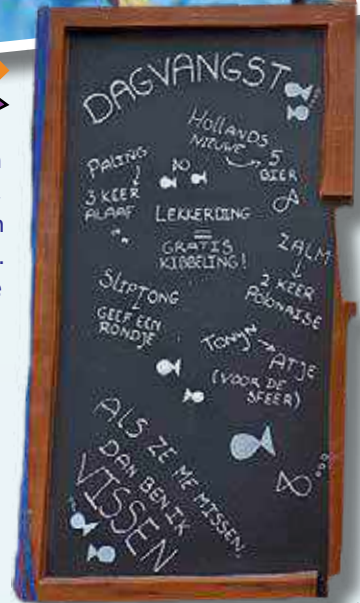 DAGVANGST
HOLLANDS
NIEUWE → 5
BIER
PALING
↓
3 KEER
ALAAF
LEKKERDING
=
GRATIS
KIBBELING!
ZALM
↓
2 KEER
POLONAISE
SLIPTONG
GEEF EEN
RONDJE
TONYN →
ATJE
(VOOR DE
SFEER)
ALS ZE ME MISSEN,
DAN BEN IK
VISSEN